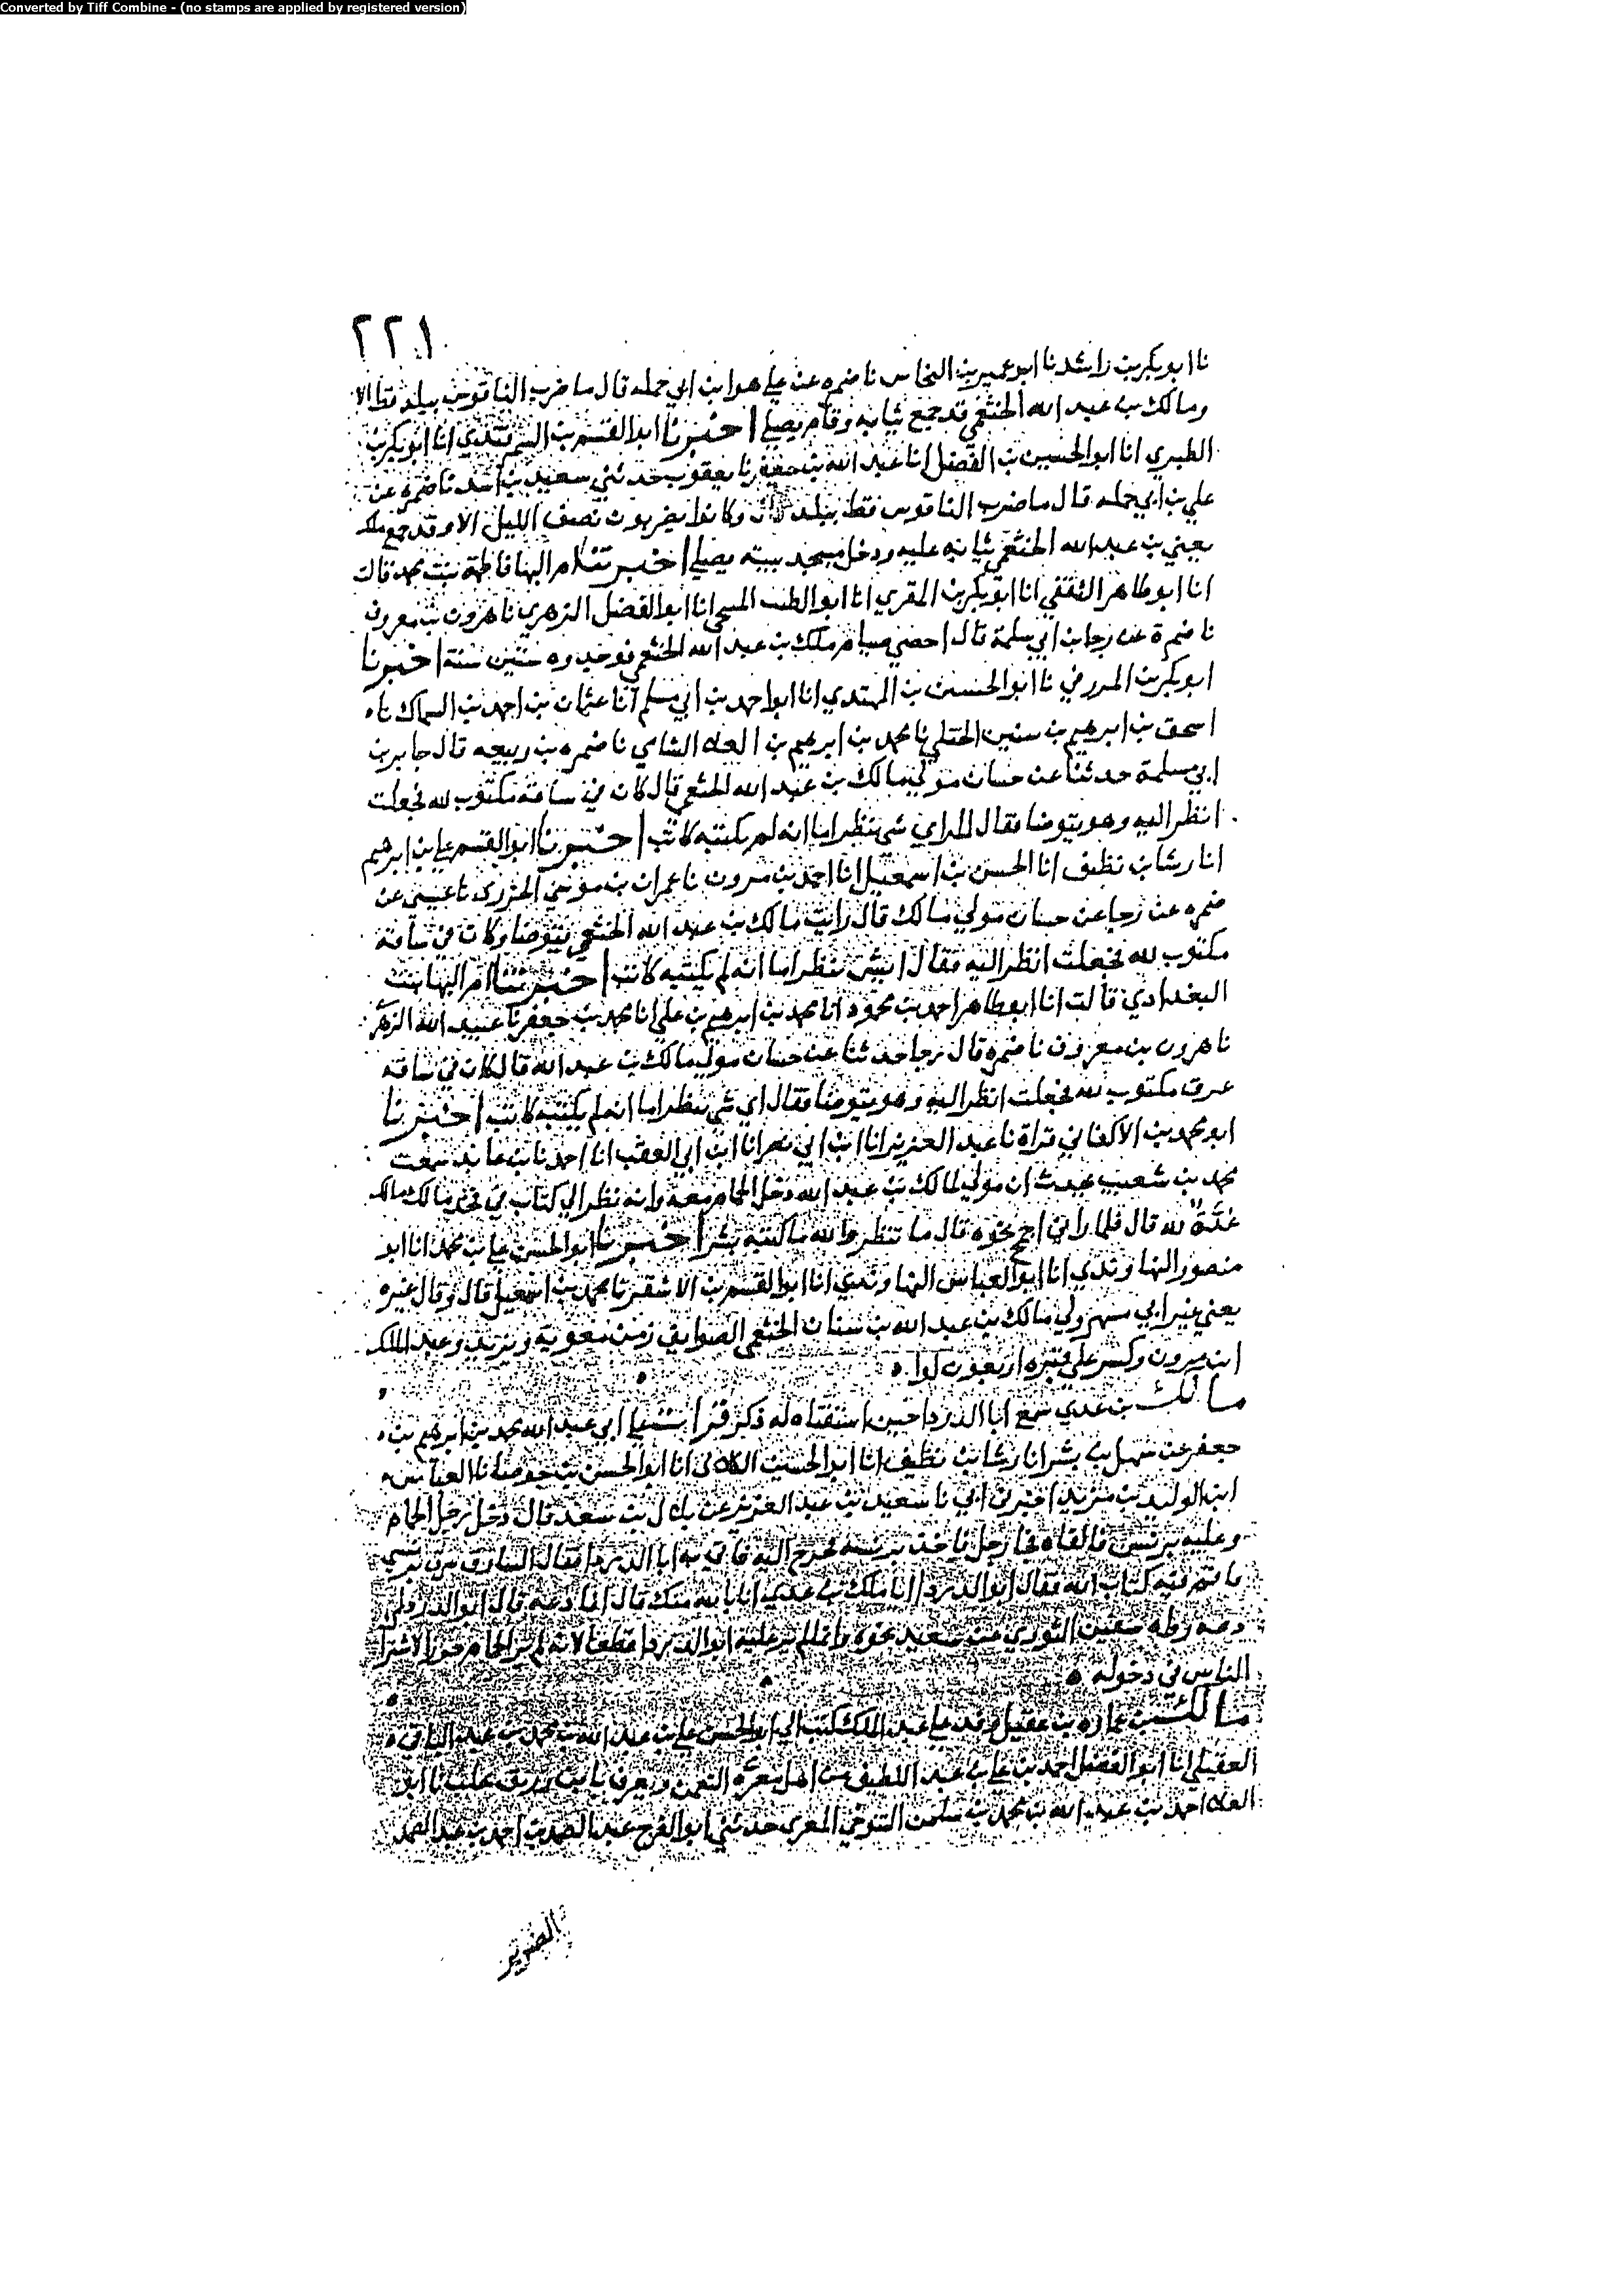 Converted by Tiff Combine - (no stamps are applied by registered version)
٢٢١
نا ابو بكر بن راشد نا ابو عمير بن النحاس نا ضمره عن علي هو ابن ابي حمله قال ما ضرب الناقوس ببلد قط الا
ومالك بن عبد الله الخثعمي قد جمع ثيابه وقام يصلي اخبرنا ابو القسم بن السمرقندي انا ابو بكر بن
الطبري انا ابو الحسين بن الفضل انا عبد الله بن جعفر نا يعقوب حدثني سعيد بن اسد نا ضمره عن
علي بن ابي حمله قال ما ضرب الناقوس قط ببلد وكانوا يضربون نصف الليل الا وقد جمع ملك
يعني بن عبد الله الخثعمي ثيابه عليه ودخل مسجد بيته يصلي اخبرتنا ام البها فاطمة بنت محمد قالت
انا ابو طاهر الثقفي انا ابو بكر بن المقري انا ابو الطيب المنبجي انا ابو الفضل الزهري نا هرون بن معروف
نا ضمرة عن رجا بن ابي سلمة قال احصي صيام ملك بن عبد الله الخثعمي فوجدوه ستين سنة اخبرنا
ابو بكر بن المزرفي نا ابو الحسين بن المهتدي انا ابو احمد بن ابي مسلم انا عثمان بن احمد بن السماك نا
اسحق بن ابرهيم بن سنين الختلي نا محمد بن ابرهيم بن العلا الشامي نا ضمره بن ربيعه قال جابر بن
ابي سلمة حدثنا عن حسان مولي مالك بن عبد الله الخثعمي قال كان في ساقه مكتوب لله فجعلت
انظر اليه وهو يتوضا فقال لي اي شي تنظر اما انه لم يكتبه كاتب اخبرنا ابو القسم علي بن ابرهيم
انا رشا بن نظيف انا الحسن بن اسمعيل انا احمد بن مروان نا عمران بن موسي الجزري نا عيسي عن
ضمره عن رجا عن حسان مولي مالك قال رايت مالك بن عبد الله الخثعمي يتوضا وكان في ساقه
مكتوب لله فجعلت انظر اليه فقال ايش تنظر اما انه لم يكتبه كاتب اخبرتنا ام البها بنت
البغدادي قالت انا ابو طاهر احمد بن محمود انا محمد بن ابرهيم بن علي انا محمد بن جعفر نا عبيد الله الزهري
نا هرون بن معروف نا ضمره قال رجا حدثنا عن حسان مولي مالك بن عبد الله قال كان في ساقه
عرق مكتوب لله فجعلت انظر اليه وهو يتوضا فقال اي شي تنظر اما انه لم يكتبه كاتب اخبرنا
ابو محمد بن الاكفاني قراة نا عبد العزيز انا ابن ابي نصر انا ابن ابي العقب انا احمد نا بن عايذ سمعت
محمد بن شعيب يحدث ان مولي لمالك بن عبد الله دخل الحمام معه وانه نظر الي كتاب في فخذ مالك
عدة لله قال فلما راني نحوه قال ما تنظر والله ما كتبه بشر اخبرنا ابو الحسن علي بن محمد انا ابو
منصور النهاوندي انا ابو العباس النهاوندي انا ابو القسم بن الاشقر نا محمد بن اسمعيل قال وقال غيره
يعني غير ابي مسهر ولي مالك بن عبد الله بن سنان الخثعمي الصوايف زمن معوية ويزيد وعبد الملك
ابن مروان وكسر علي قبره اربعون لوا
مالك بن عدي سمع ابا الدردا حين استفتاه له ذكر قرات علي ابي عبد الله محمد بن ابرهيم بن
جعفر عن سهل بن بشر انا رشا بن نظيف انا ابو الحسين الكلابي انا ابو الحسن بن جوصا نا العباس
ابن الوليد بن مزيد اخبرني ابي نا سعيد بن عبد العزيز عن بلال بن سعد قال دخل رجل الحمام
وعليه برنس فالقاه فجا رجل فاخذ برنسه فخرج اليه فاتي به ابا الدردا فقال السارق سرق برنسي
فاقم فيه كتاب الله فقال ابو الدردا انا ملك بن عدي انا بالله منك قال انما دعه قال ابو الدردا
دعه رواه سفين الثوري عن سعيد نحوه وانما لم ير عليه ابو الدردا قطعا لانه لم ير الحمام حرزا لاشتراك
الناس في دخوله
مالك بن عماره بن عقيل وفد علي عبد الملك كتب الي ابو الحسن علي بن عبد الله بن محمد بن عبد الباقي
العقيلي انا ابو الفضل احمد بن علي بن عبد اللطيف من اهل معرة النعمن ويعرف بابن زريق بحلب نا ابو
العلا احمد بن عبد الله بن محمد بن سليمن التنوخي المعري حدثني ابو الفرج عبد الصمد بن احمد بن عبد الصمد
الضرير